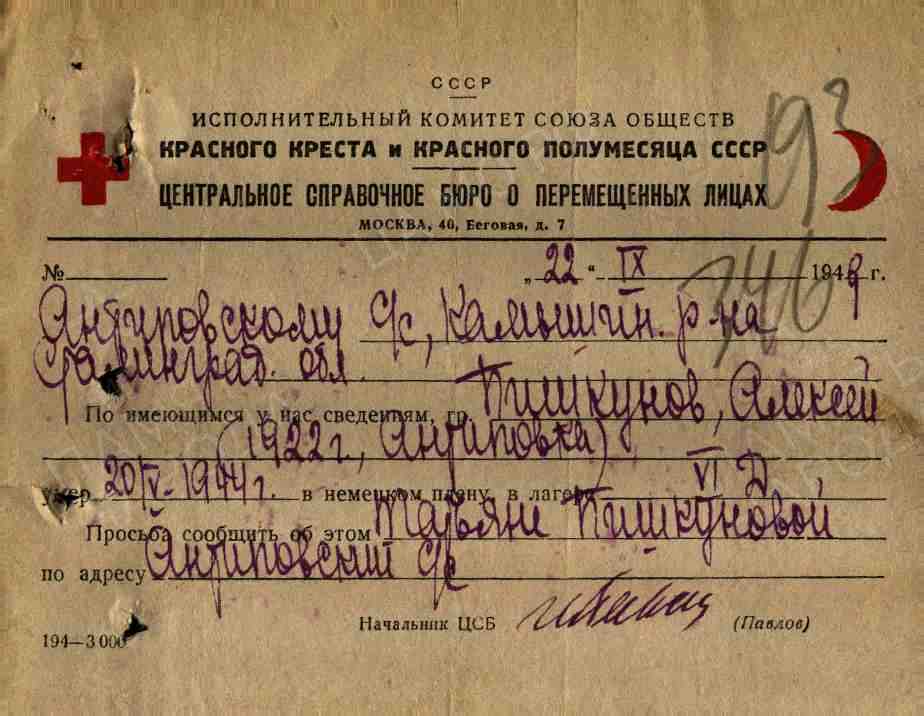 СССР
ИСПОЛНИТЕЛЬНЫЙ КОМИТЕТ СОЮЗА ОБЩЕСТВ
КРАСНОГО КРЕСТА и КРАСНОГО ПОЛУМЕСЯЦА СССР
ЦЕНТРАЛЬНОЕ СПРАВОЧНОЕ БЮРО О ПЕРЕМЕЩЕННЫХ ЛИЦАХ
МОСКВА, 40, Беговая, д. 7
93
№ „22“ IX 1949 г.
746
Антиповскому с/с, Камышин. р-на
Сталинград. обл.
По имеющимся у нас сведениям, гр. Пишкунов, Алексей
(1922 г., Антиповка)
умер 20/V-1944 г. в немецком плену, в лагере VI D,
Просьба сообщить об этом Татьяне Пишкуновой
по адресу Антиповский с/с
Начальник ЦСБ (Павлов)
194—3 000